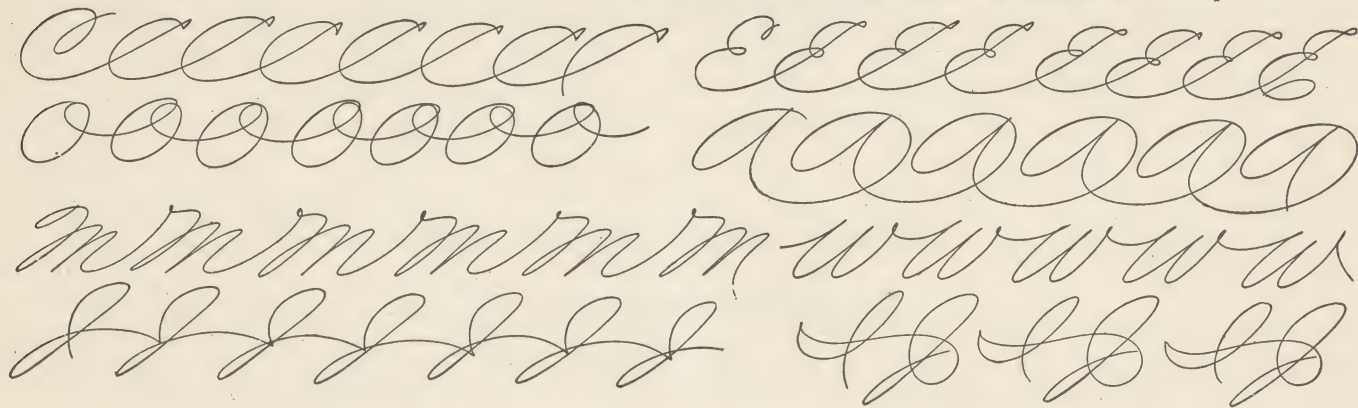 C C C C C C C E E E E E E E E
O O O O O O O A A A A A A
M M M M M M W W W W W
J J J J J J J